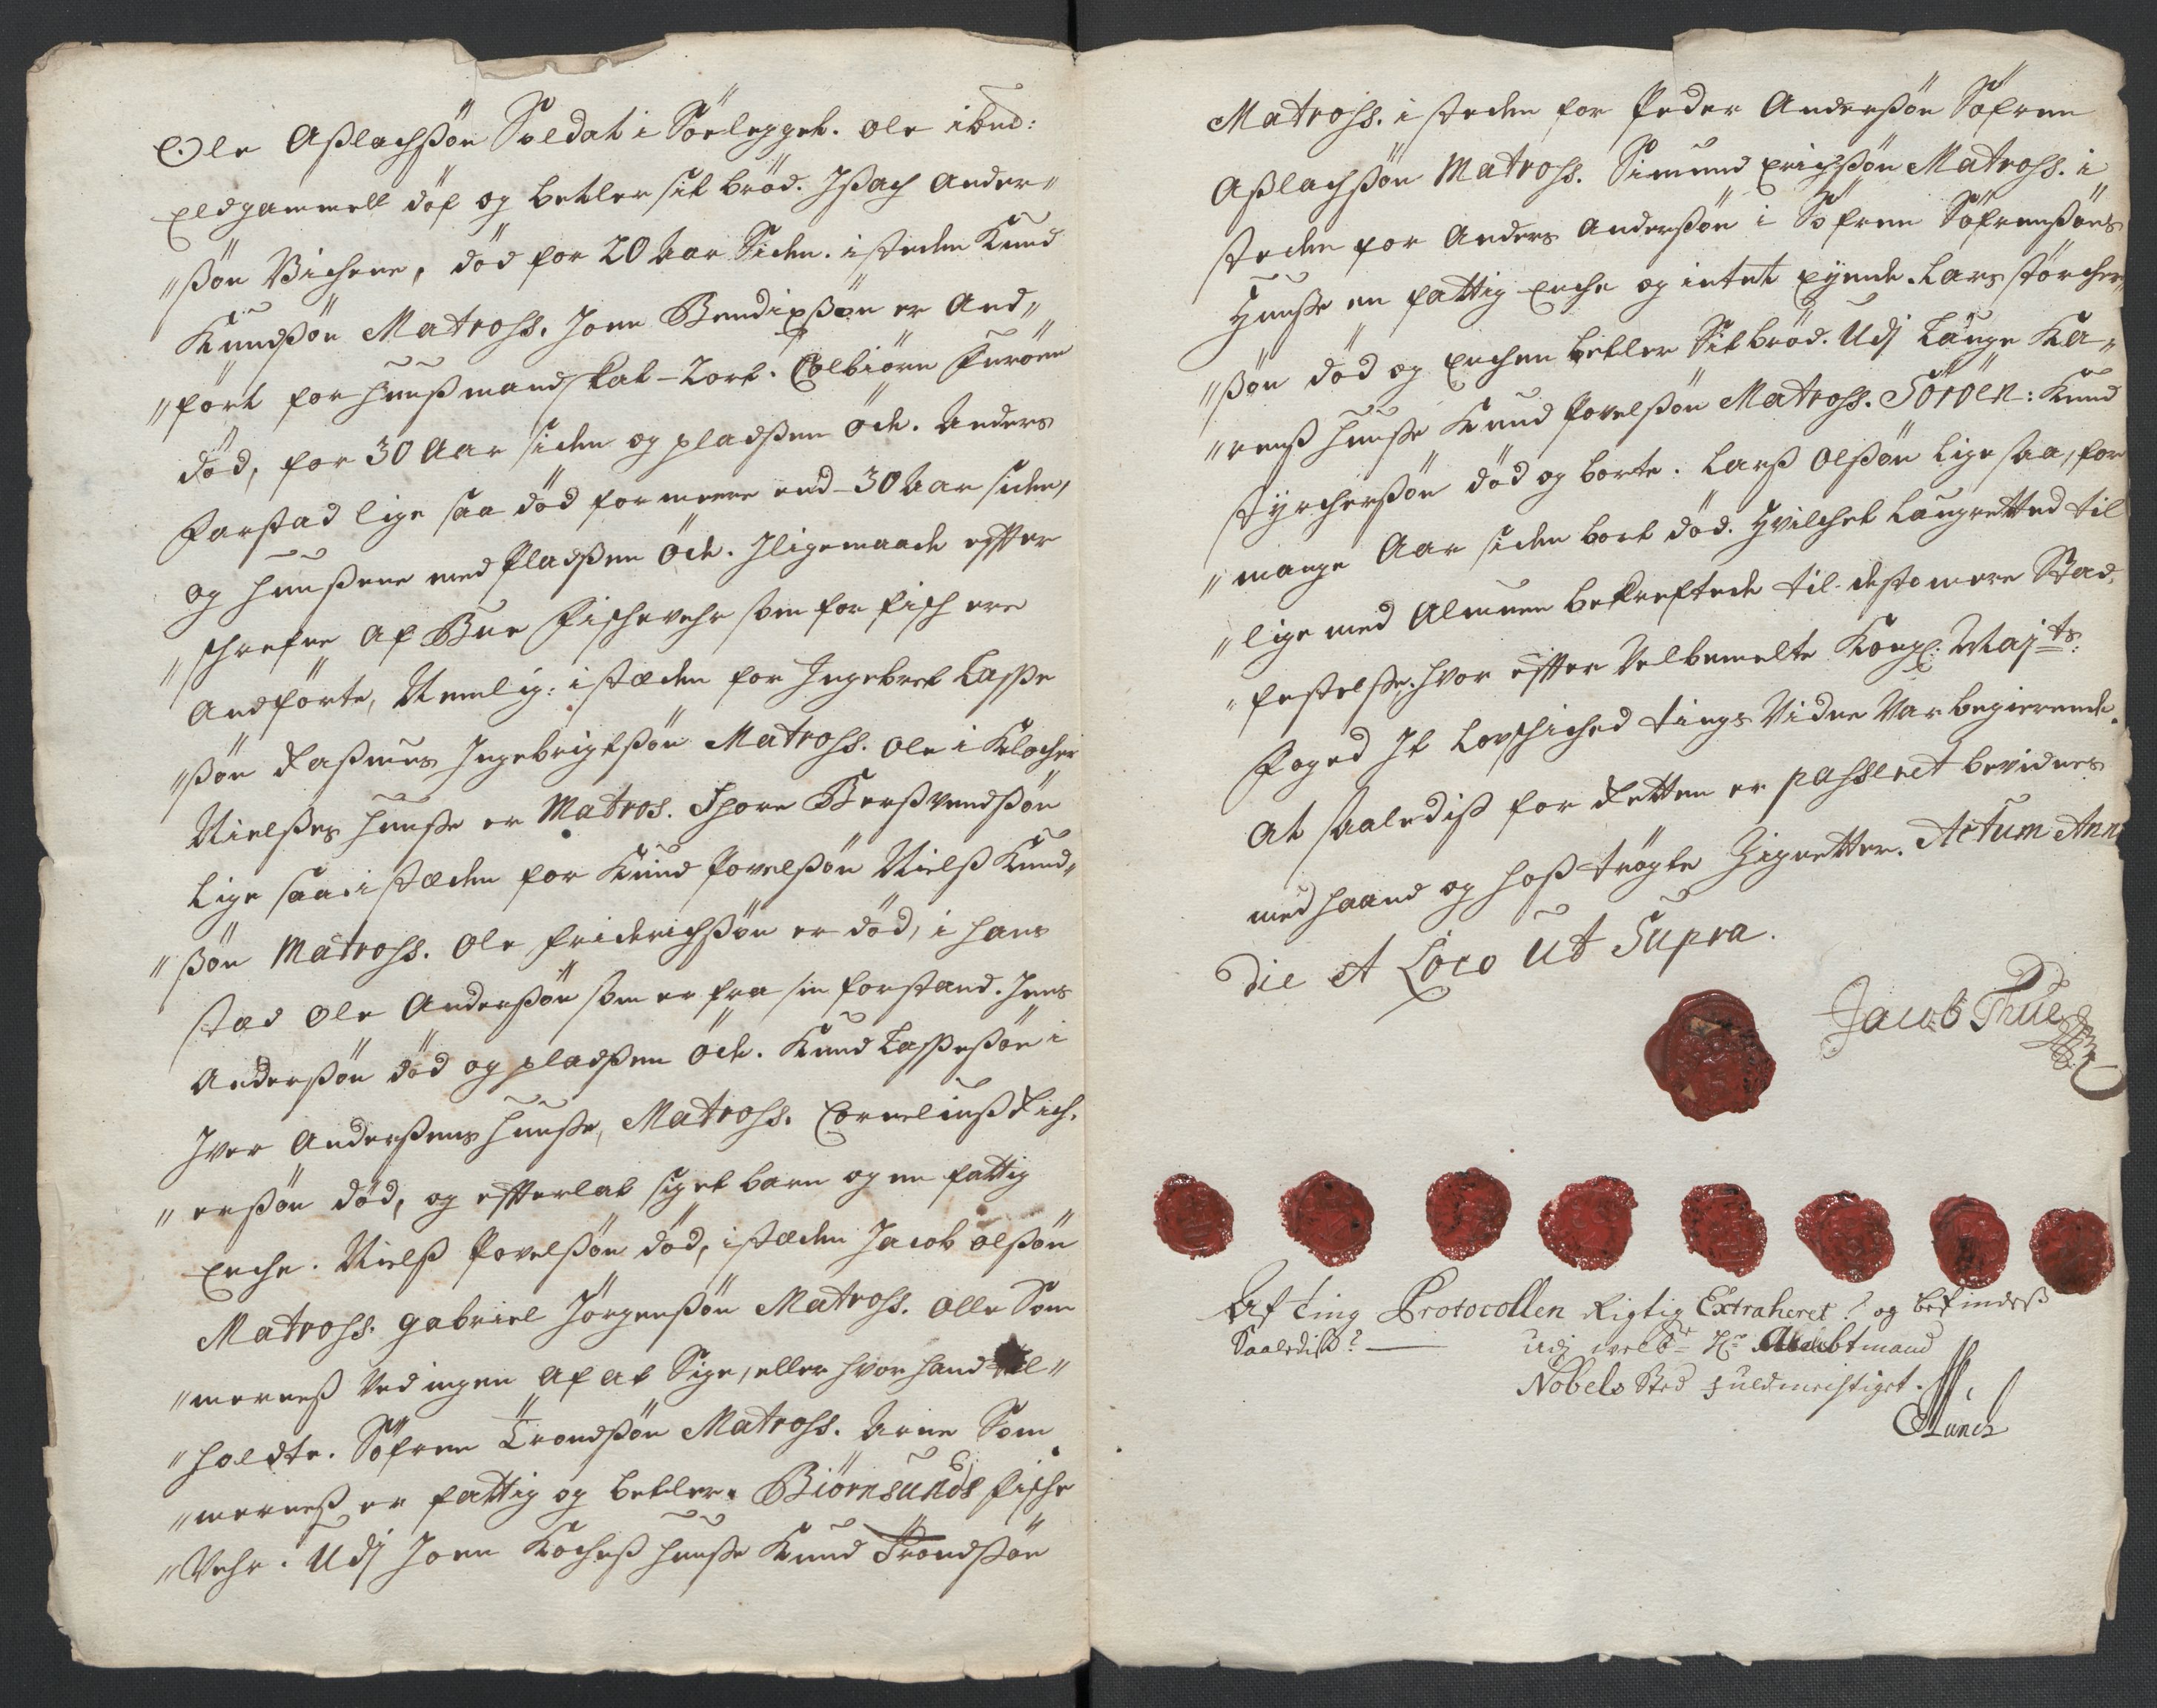 Ole Aßlachßön Soldat i Söelegget. Ole ibnd:
Eldgammell döf og betler sit bröd. Jßach Ander„
„ßön Vichene, död for 20 Aar Siden. isteden Knud
Knudßön Matross. Joen Bendixßøn er And„
„fört for huußmand skat - 2 ort. Colbiørn Furöen
död, for 30 Aar siden og pladßen öde. Anders
Farstad lige saa död for meere end - 30 Aar siden,
og Huußene med Pladßen öde. Jligemaade effter
„schrefne af Bue Fischevehr som for fisch ere
Andförte, Nemlig: istæden for Jngebret Laße
„ßön Raßmus Jngebrigtßön Matross. Ole i Klocher
Nielßes Huuße er Matros. Thore Berßvendßön
Lige saa. istæden for Knud Povelßön Nielß Knud„
„ßön Matross. Ole Friderichßön er död, i hans
stæd Ole Anderßön som er fra sin forstand. Jens
Anderßön död og pladßen öde. Knud Laßeßön i
Jver Anderßens Huuße, Matross. Corneliuß Rich„
„erßön död, og effterlat siget barn og en fattig
Enche. Nielß Povelßön död, istæden Jacob olßön
Matross. Gabriel Jörgenßön Matross. Olle Som
„merneß Ved ingen af at Sige, eller hvor hand til„
„holdte. Söfren Trondßön Matross. Arne Som
„merneß er fattig og betler. Biörnsunds fische
„Vehr. Udj Joen Kocheß huuße Knud Trondßön
Matross. isteden for Peder Anderßön Söfren
Aßlachßön Matross. Simund Erichßön Matross. i
steden for Anders Anderßön i Söfren Söfrenßöns
Huuße en fattig Enche og intet Eyende. Lars störcher„
„ßön död og Enchen betler Sit bröd. Udj Lauge Ka„
„renß huuße Knud Povelßön Matross. Söröen: Knud
Styrcherßön död og borte. Larß Olßön lige saa, for
„mange Aar siden bort död. Hvilchet Laugretted til
„lige med Almuen bekreftede til desto mere Stad„
„festelße. hvor effter Velbemelte Kongl: Maj:ts:
Foged Jt Lovschiched tings Vidne Var begierende.
At saalediß for Retten er passeret bevidnes
med haand og hoß trögte Zignetter. Actum Ann
die et Loco ut Supra.
Jacob Thue
Af ting Protocollen Rigtig Extraheret? og befindeß
Saaledis? — udj velb:r Hr: Ambtmand
Nobels Sted fuldmechtiget.
Munch